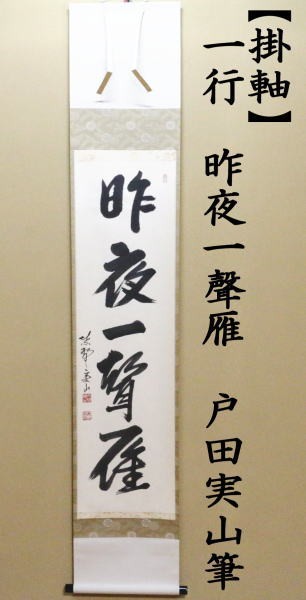 【掛軸】
一行 昨夜一聲雁 戸田実山筆
昨夜一聲雁